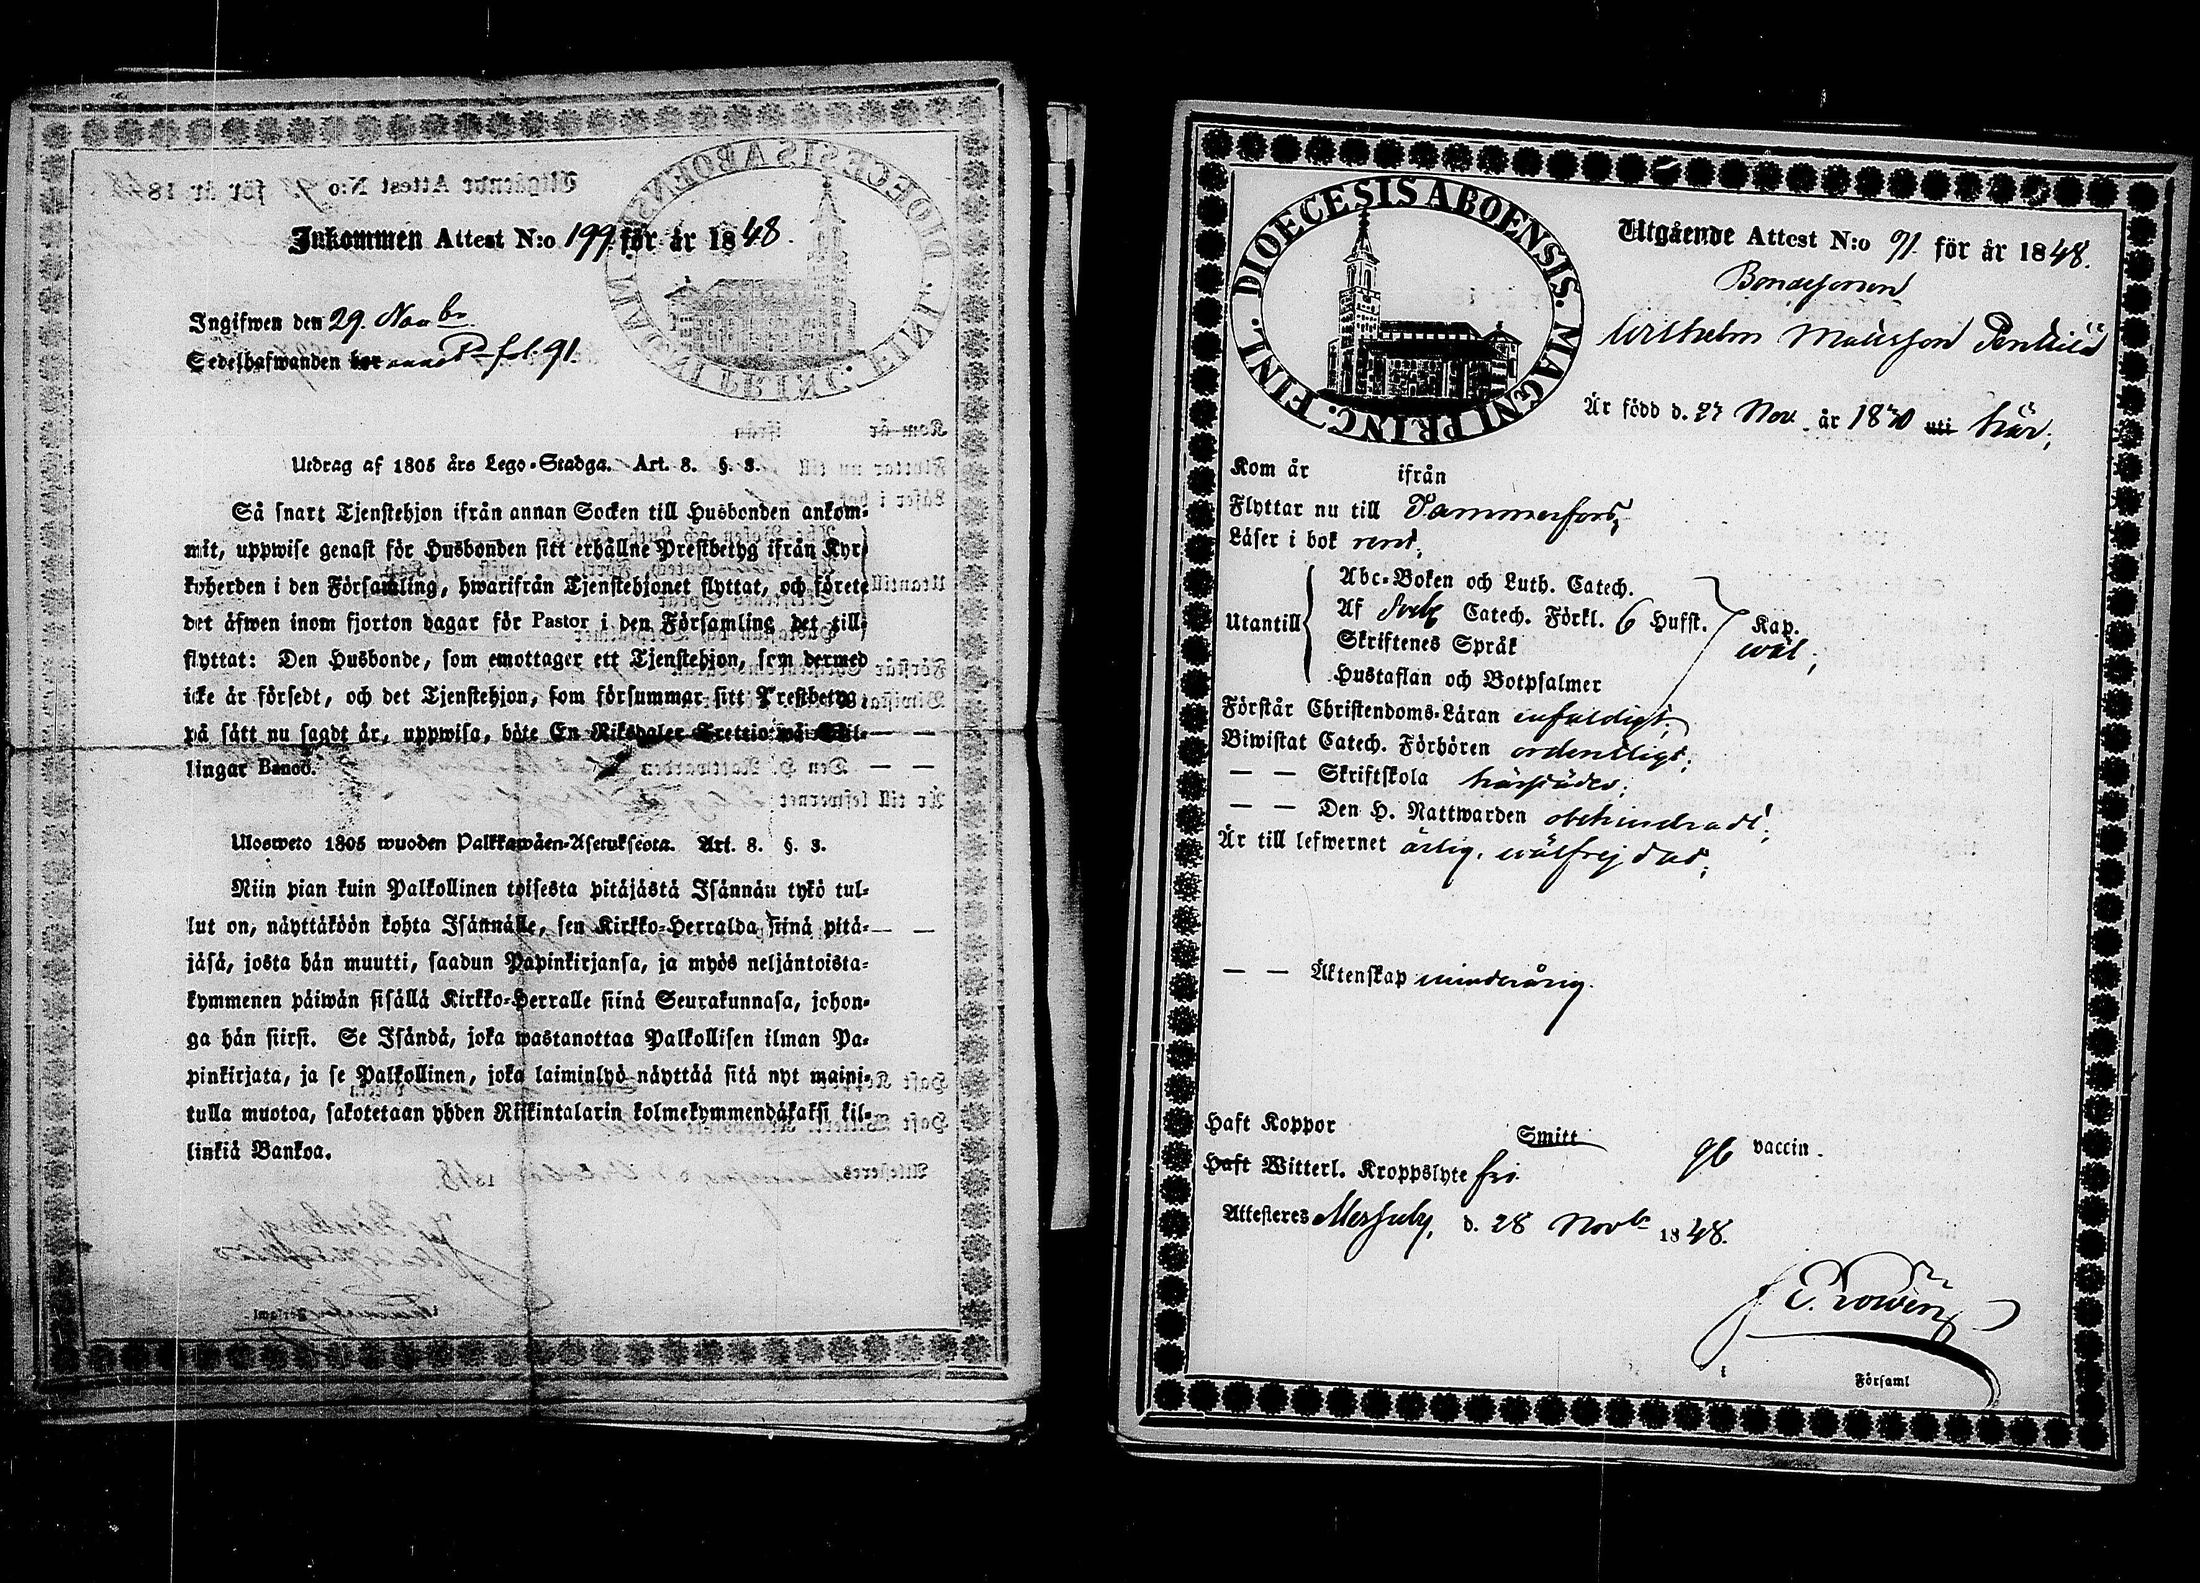 Inkommen Attest N:o 199 för år 1848.
Ingifwen den 29. Novbr
Sedelhafwanden har fol. 91.
Utdrag af 1805 års Lego-Stadga. Art. 8. §. 3.
Så snart Tjenstehjon ifrån annan Socken till Husbonden ankom-
mit, uppwise genast för Husbonden sitt erhållne Prestbetyg ifrån Kyr-
koherden i den Församling, hwarifrån Tjenstehjonet flyttat, och förete
det äfwen inom fjorton dagar för Pastor i den Församling det till-
flyttat: Den Husbonde, som emottager ett Tjenstehjon, som dermed
icke är försedt, och det Tjenstehjon, som försummar sitt Prestbetyg
på sätt nu sagdt är, uppwisa, böte En Riksdaler Trettiotwå Skil-
lingar Banco.
Ulosweto 1805 wuoden Palkkawäen-Asetuksesta. Art. 8. §. 3.
Niin pian kuin Palkollinen toisesta pitäjästä Isännän tykö tul-
lut on, näyttäköön kohta Isännälle, sen Kirkko-Herralda siinä pitä-
jäsä, josta hän muutti, saadun Papinkirjansa, ja myös neljäntoista-
kymmenen päiwän sisällä Kirkko-Herralle siinä Seurakunnasa, johon-
ga hän siirsi. Se Isändä, joka wastanottaa Palkollisen ilman Pa-
pinkirjata, ja se Palkollinen, joka laiminlyö näyttää sitä nyt maini-
tulla muotoa, sakotetaan yhden Riikintalarin kolmekymmendäkaksi kil-
linkiä Bankoa.
DIOECESIS ABOENSIS. MAGNI PRINC. FINL.
Utgående Attest N:o 91. för år 1848.
Bondesonen
Wilhelm Mattsson Penttilä
Är född d. 27 Nov. år 1830 uti här;
Kom år ifrån
Flyttar nu till Tammerfors;
Läser i bok rent;
Abc-Boken och Luth. Catech.
Utantill Af Sveb Catech. Förkl. 6 Hufst. Kap.
Skriftenes Språk wäl;
Hustaflan och Botpsalmer
Förstår Christendoms-Läran enfaldigt;
Biwistat Catech. Förhören ordentligt;
— — Skriftskola härstädes;
— — Den H. Nattwarden obehindradt;
Är till lefwernet ärlig, wälfrejdad;
— — Äktenskap minderårig.
Haft Koppor
Smitt vaccin.
Haft Witterl. Kroppslyte fri.
Attesteres Messuby, d. 28 Novbr 1848.
i Församl